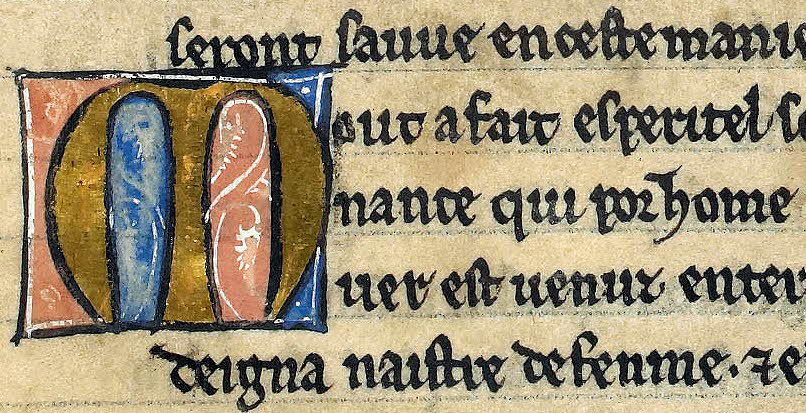 seront sauue en ceste manie
Mout a fait esperitel so
nance qui por home
uer est uenuz enter
deigna naistre de fenme. ⁊ e